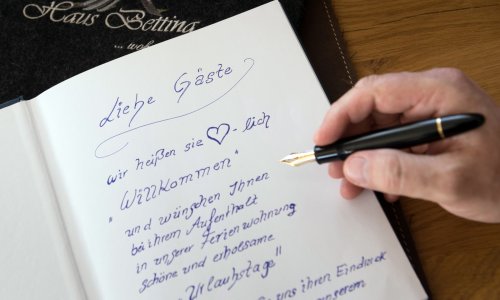 Haus Betting
Liebe Gäste
wir heißen sie ♡-lich
"Willkommen"
und wünschen Ihnen
bei ihrem Aufenthalt
in unserer Ferienwohnung
schöne und erholsame
"Urlaubstage"
uns ihren Eindruck
unserem